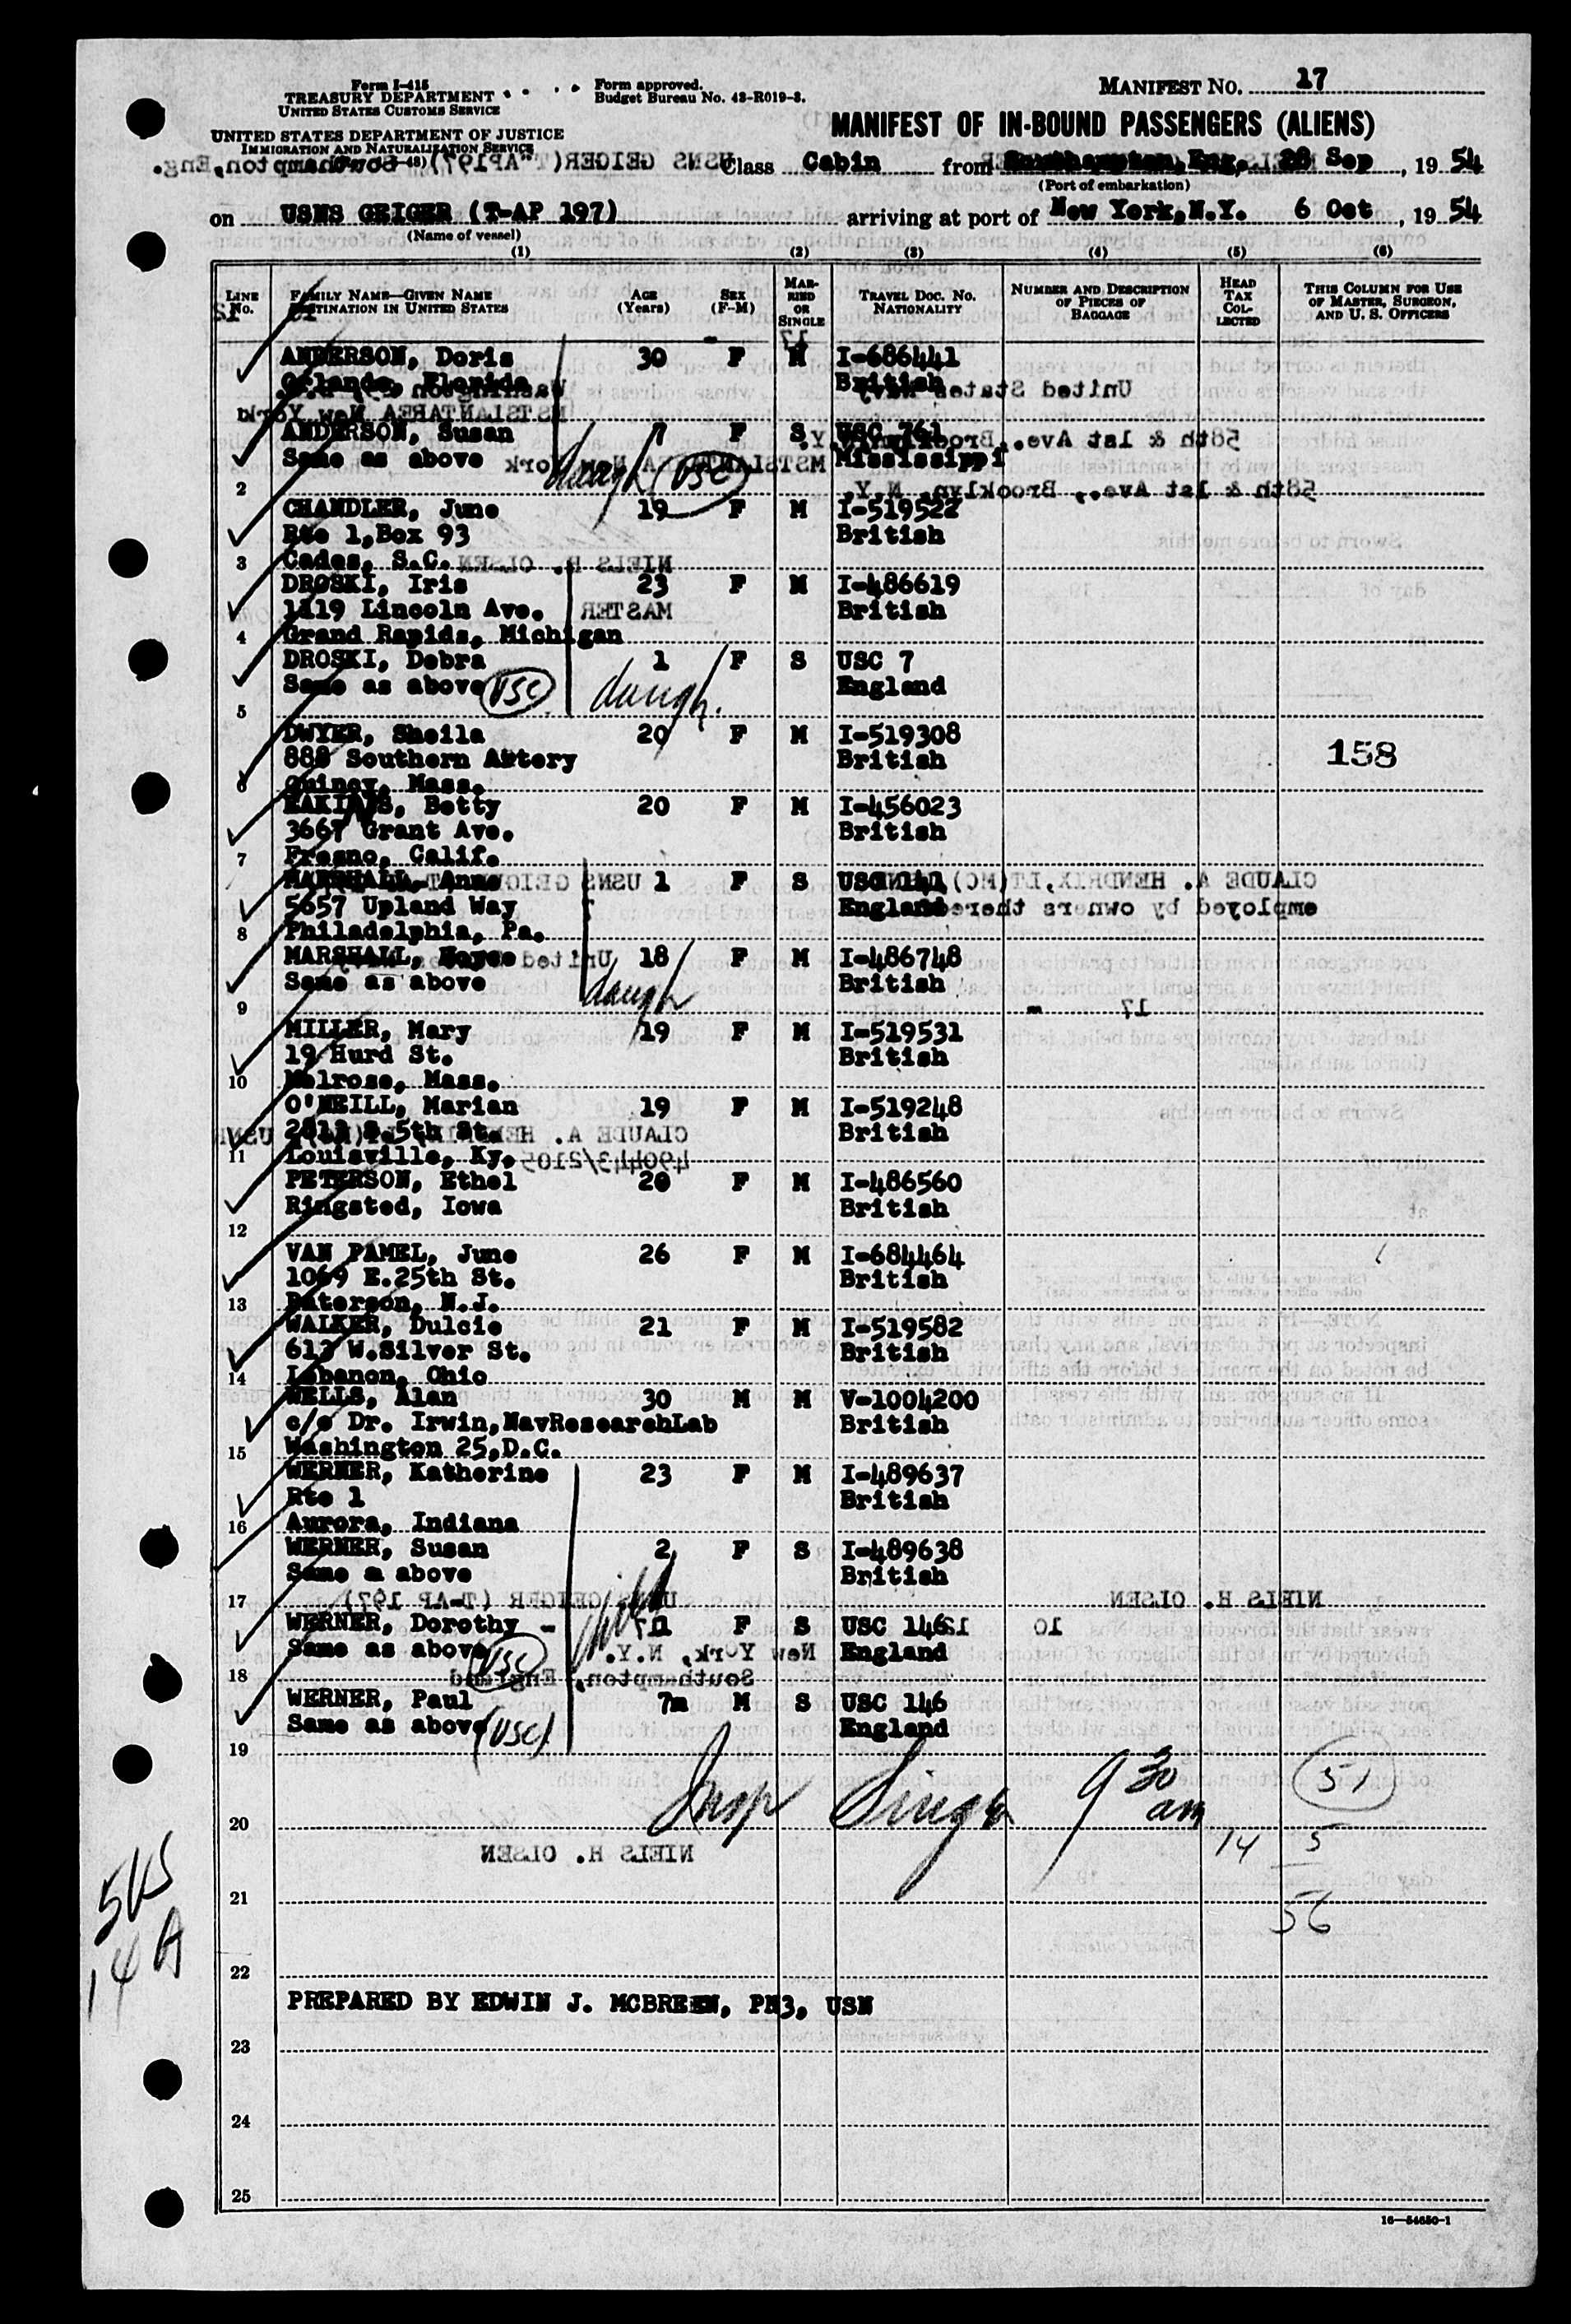 Form I-415
TREASURY DEPARTMENT
UNITED STATES CUSTOMS SERVICE
UNITED STATES DEPARTMENT OF JUSTICE
IMMIGRATION AND NATURALIZATION SERVICE
Form approved.
Budget Bureau No. 43-R019-3.
MANIFEST No. 17
MANIFEST OF IN-BOUND PASSENGERS (ALIENS)
Class Cabin from Southampton, Eng. 28 Sep, 1954
(Port of embarkation)
on USNS GEIGER (T-AP 197) arriving at port of New York, N.Y. 6 Oct, 1954
(Name of vessel)
(1) (2) (3) (4) (5) (6)
LINE No. FAMILY NAME—GIVEN NAME DESTINATION IN UNITED STATES AGE (Years) SEX (F-M) MARRIED OR SINGLE TRAVEL DOC. No. NATIONALITY NUMBER AND DESCRIPTION OF PIECES OF BAGGAGE HEAD TAX COLLECTED THIS COLUMN FOR USE OF MASTER, SURGEON, AND U. S. OFFICERS
ANDERSON, Doris 30 F M I-686441
Orlando, Florida British
ANDERSON, Susan 7 F S USC 761
Same as above Mississippi
2 daugh (USC)
CHANDLER, June 19 F M I-519522
Rte 1,Box 93 British
3 Cades, S.C.
DROSKI, Iris 23 F M I-486619
1119 Lincoln Ave. British
4 Grand Rapids, Michigan
DROSKI, Debra 1 F S USC 7
Same as above USC daugh. England
5
DWYER, Sheila 20 F M I-519308
888 Southern Artery British 158
6 Quincy, Mass.
EAKINS, Betty 20 F M I-456023
3667 Grant Ave. British
7 Fresno, Calif.
MARSHALL, Anne 1 F S USC 141
5657 Upland Way England
8 Philadelphia, Pa.
MARSHALL, Joyce 18 F M I-486748
Same as above daugh British
9
MILLER, Mary 19 F M I-519531
19 Hurd St. British
10 Melrose, Mass.
O'NEILL, Marian 19 F M I-519248
2813 S.5th St. British
11 Louisville, Ky.
PETERSON, Ethel 20 F M I-486560
Ringsted, Iowa British
12
VAN PAMEL, June 26 F M I-684464
1069 E.25th St. British
13 Paterson, N.J.
WALKER, Dulcie 21 F M I-519582
613 W.Silver St. British
14 Lebanon, Ohio
WELLS, Alan 30 M M V-1004200
c/o Dr. Irwin,NavResearchLab British
15 Washington 25,D.C.
WERNER, Katherine 23 F M I-489637
Rte 1 British
16 Aurora, Indiana
WERNER, Susan 2 F S I-489638
Same a above British
17
WERNER, Dorothy F S USC 146
Same as above USC England
18
WERNER, Paul 7m M S USC 146
Same as above (USC) England
19
Insp 9 30 am 51
20
14 5
21
56
5US
14A
22
PREPARED BY EDWIN J. MCBREEN, PN3, USN
23
24
25
16—54650-1